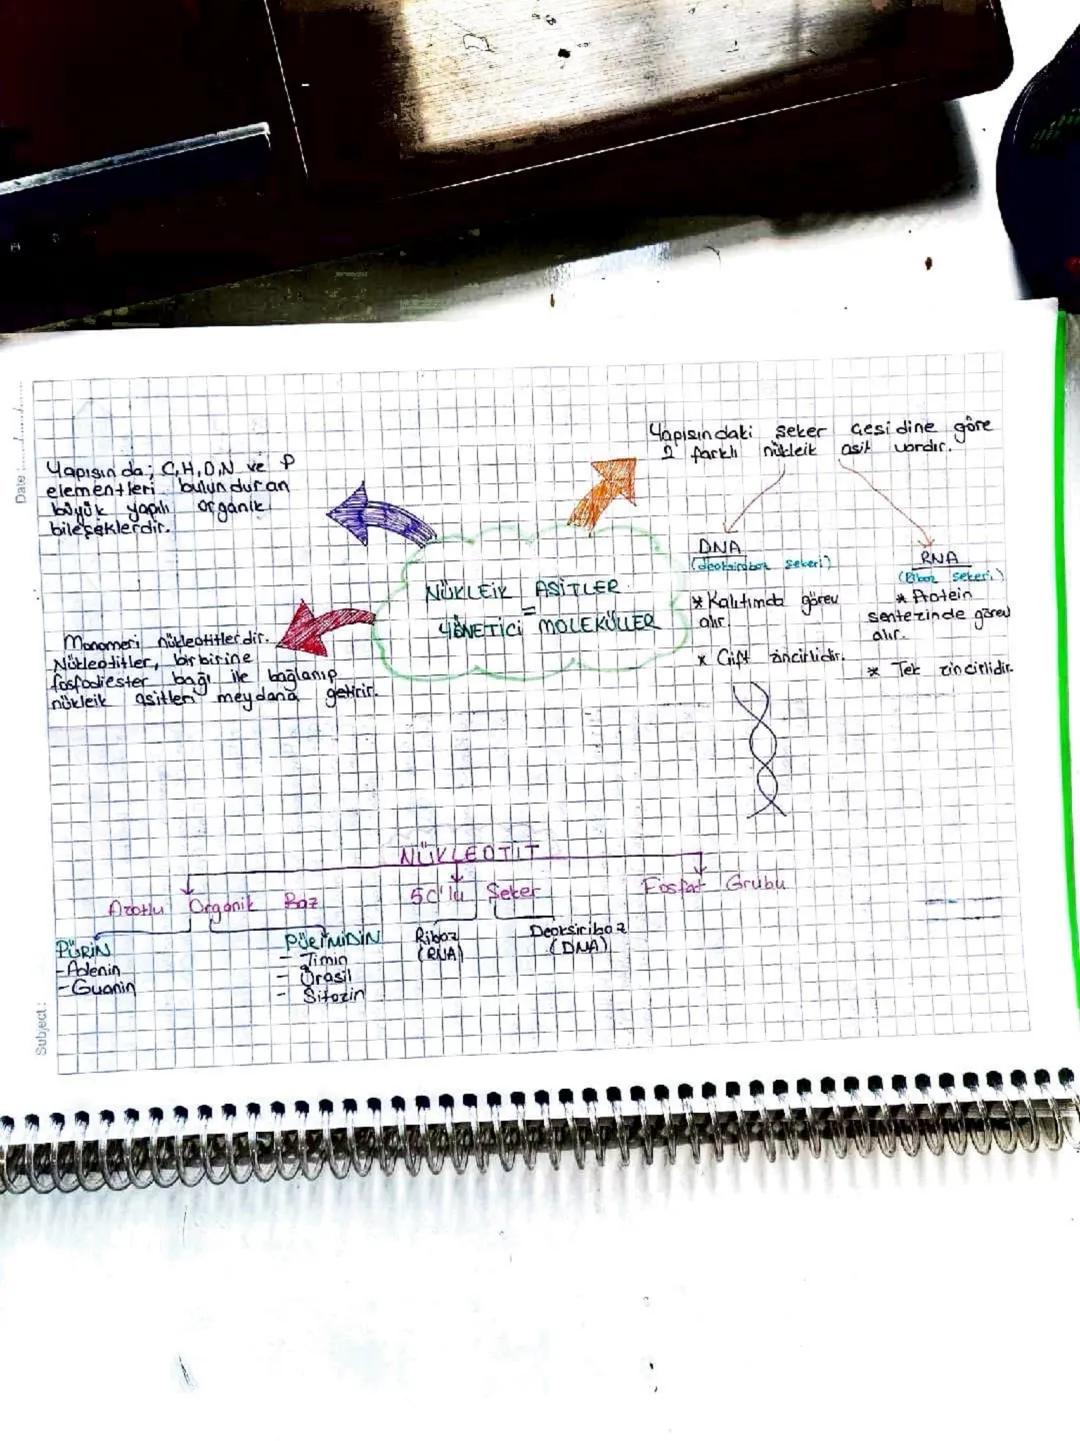 Date :
Yapısında; C,H,O,N ve P
elementleri bulunduran
büyük yapılı organik
bileşeklerdir.
Yapısındaki şeker çeşidine göre
2 farklı nükleik asit vardır.
NÜKLEİK ASİTLER
=
YÖNETİCİ MOLEKÜLLER
Monomeri nükleotitlerdir.
Nükleotitler, birbirine
fosfodiester bağı ile bağlanıp
nükleik asitleri meydana getirir.
DNA
(deoksiriboz şekeri)
* Kalıtımda görev
alır.
* Çift zincirlidir.
RNA
(Riboz şekeri)
* Protein
sentezinde görev
alır.
* Tek zincirlidir.
NÜKLEOTİT
Azotlu Organik Baz
5C'lu Şeker
Fosfat Grubu
PÜRİN
-Adenin
-Guanin
PÜRİMİDİN
- Timin
- Urasil
- Sitozin
Riboz
(RNA)
Deoksiriboz
(DNA)
Subject :